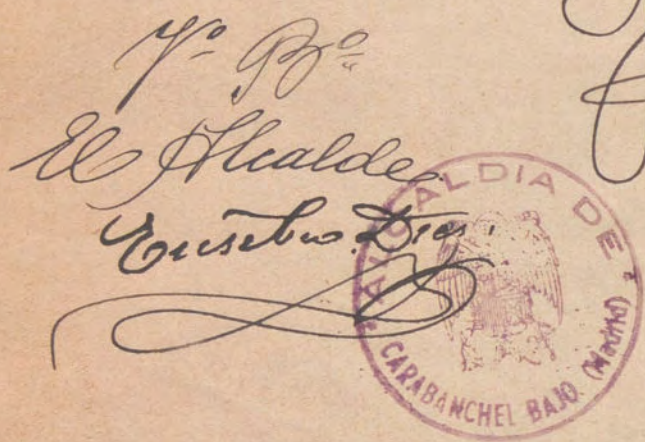 Vº Bº
El Alcalde
Eusebio Dies.
ALCALDIA DE
CARABANCHEL BAJO (Madrid)